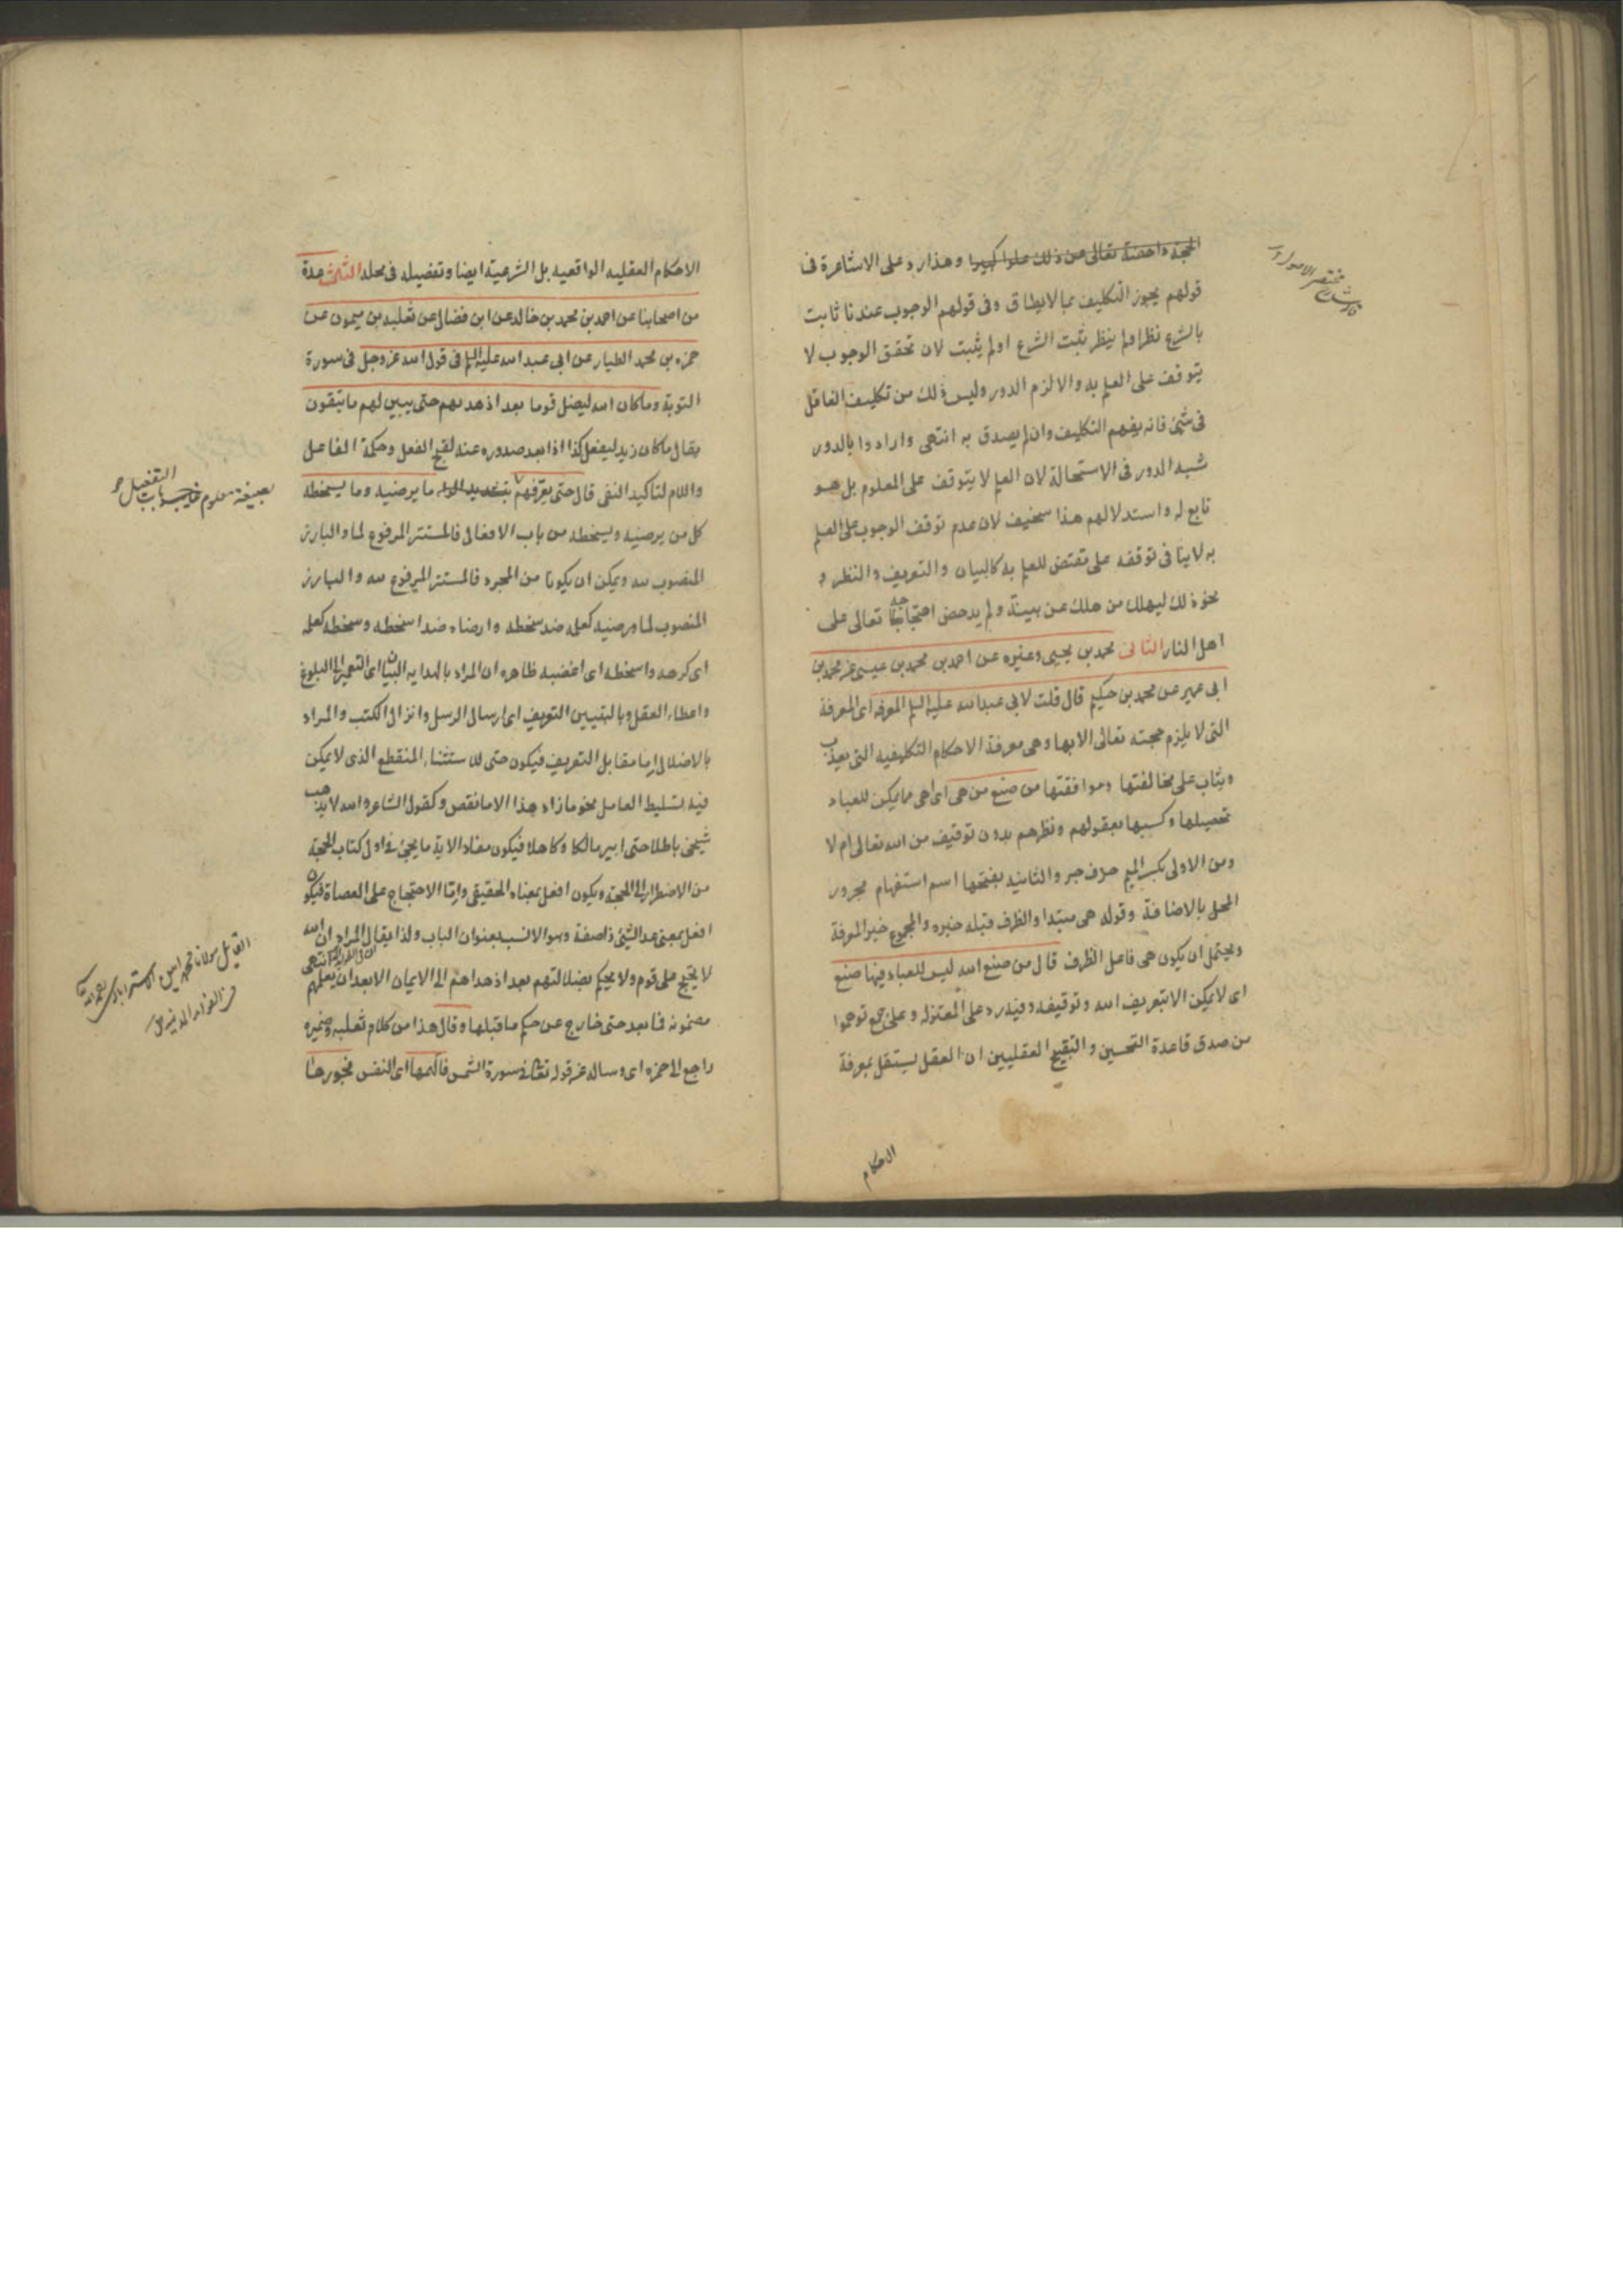 الحجة داحضة تعالى عن ذلك علوا كبيرا وهذا رد على الاشاعرة فى
قولهم يجوز التكليف بما لايطاق وفى قولهم الوجوب عندنا ثابت
بالشرع نظر اولم ينظر ثبت الشرع اولم يثبت لان تحقق الوجوب لا
يتوقف على العلم به والا لزم الدور وليس ذلك من تكليف الغافل
فى شئ فانه يفهم التكليف وان لم يصدق به انتهى وارادوا بالدور
شبه الدور فى الاستحالة لان العلم لا يتوقف على المعلوم بل هو
تابع له واستدلالهم هذا سخيف لان عدم توقف الوجوب على العلم
به لاينافى توقفه على مقتض للعلم به كالبيان والتعريف والنظر و
نحو ذلك ليهلك من هلك عن بينة ولم يدحض احتجاجه تعالى على
اهل النار الثانى محمد بن يحيى وغيره عن احمد بن محمد بن عيسى عن محمد بن
ابى عمير عن محمد بن حكيم قال قلت لابى عبدالله عليه السلم المعرفه اى المعرفة
التى لا يلزم حجته تعالى الا بها وهى معرفة الاحكام التكليفيه التى يعذب
ويثاب على مخالفتها وموافقتها من صنع من هى اى اهى مما يمكن للعباد
تحصيلها وكسبها بعقولهم ونظرهم بدون توقيف من الله تعالى ام لا
ومن الاولى بكسر الميم حرف جر والثانيه بفتحها اسم استفهام مجرور
المحل بالاضافة وقوله هى مبتدا والظرف قبله خبره والمجموع خبر المعرفة
ويحتمل ان يكون هى فاعل الظرف قال من صنع الله ليس للعباد فيها صنع
اى لايمكن الا بتعريف الله وتوقيفه وفيه رد على المعتزله وعلى جمع توهموا
من صدق قاعدة التحسين والتقبيح العقليين ان العقل يستقل بمعرفة
الاحكام
الاحكام العقليه الواقعيه بل الشرعية ايضا وتفصيله فى محله الثالث عدة
من اصحابنا عن احمد بن محمد بن خالد عن ابن فضال عن ثعلبه بن ميمون عن
حمزه بن محمد الطيار عن ابى عبد الله عليه السلم فى قول الله عز وجل فى سورة
التوبة وماكان الله ليضل قوما بعد اذ هديهم حتى يبين لهم مايتقون
يقال ماكان زيد ليفعل كذا اذا بعد صدوره عنه لقبح الفعل وحكمة الفاعل
واللام لتاكيد النفى قال حتى يعرفهم بتشديد الراء ما يرضيه وما يسخطه
كل من يرضيه ويسخطه من باب الافعال فالمستتر المرفوع لما والبارز
المنصوب لله ويمكن ان يكونا من المجرد فالمستتر المرفوع لله والبارز
المنصوب لما ورضيه كعلمه ضد سخطه وارضاه ضد اسخطه وسخطه كعلمه
اى كرهه واسخطه اى اغضبه ظاهره ان المراد بالهدايه البيان اى التعمير الى البلوغ
واعطاء العقل وبالتبيين التعريف اى ارسال الرسل وانزال الكتب والمراد
بالاضلال اما مقابل التعريف فيكون حتى للاستثناء المنقطع الذى لايمكن
فيه تسليط العامل نحو مازاد هذا الا مانقص وكقول الشاعر والله لا يذهب
شيخى باطلا حتى ابير مالكا وكاهلا فيكون مفاد الاية مايجئ فى اول كتاب الحجة
من الاضطرار الى الحجة ويكون افعل بمعناه الحقيقى واما الاحتجاج على العصاة فيكون
افعل بمعنى عد الشئ ذا صفة وهو الانسب بعنوان الباب ولذا يقال المراد ان الله
لا يحتج على قوم ولا يحكم بضلالتهم بعد اذ هداهم الى الايمان الا بعد ان يعلمهم انتهى
مضمونه فما بعد حتى خارج عن حكم ماقبلها وقال هذا من كلام ثعلبه وضميره
راجع الى حمزه اى وساله عن قوله تعالى فى سورة الشمس فالهمها اى النفس فجورها
بصيغة معلوم غايب باب التفعيل
القايل مولانا محمد امين الاسترابادى رحمه الله
فى الفوايد المدنيه